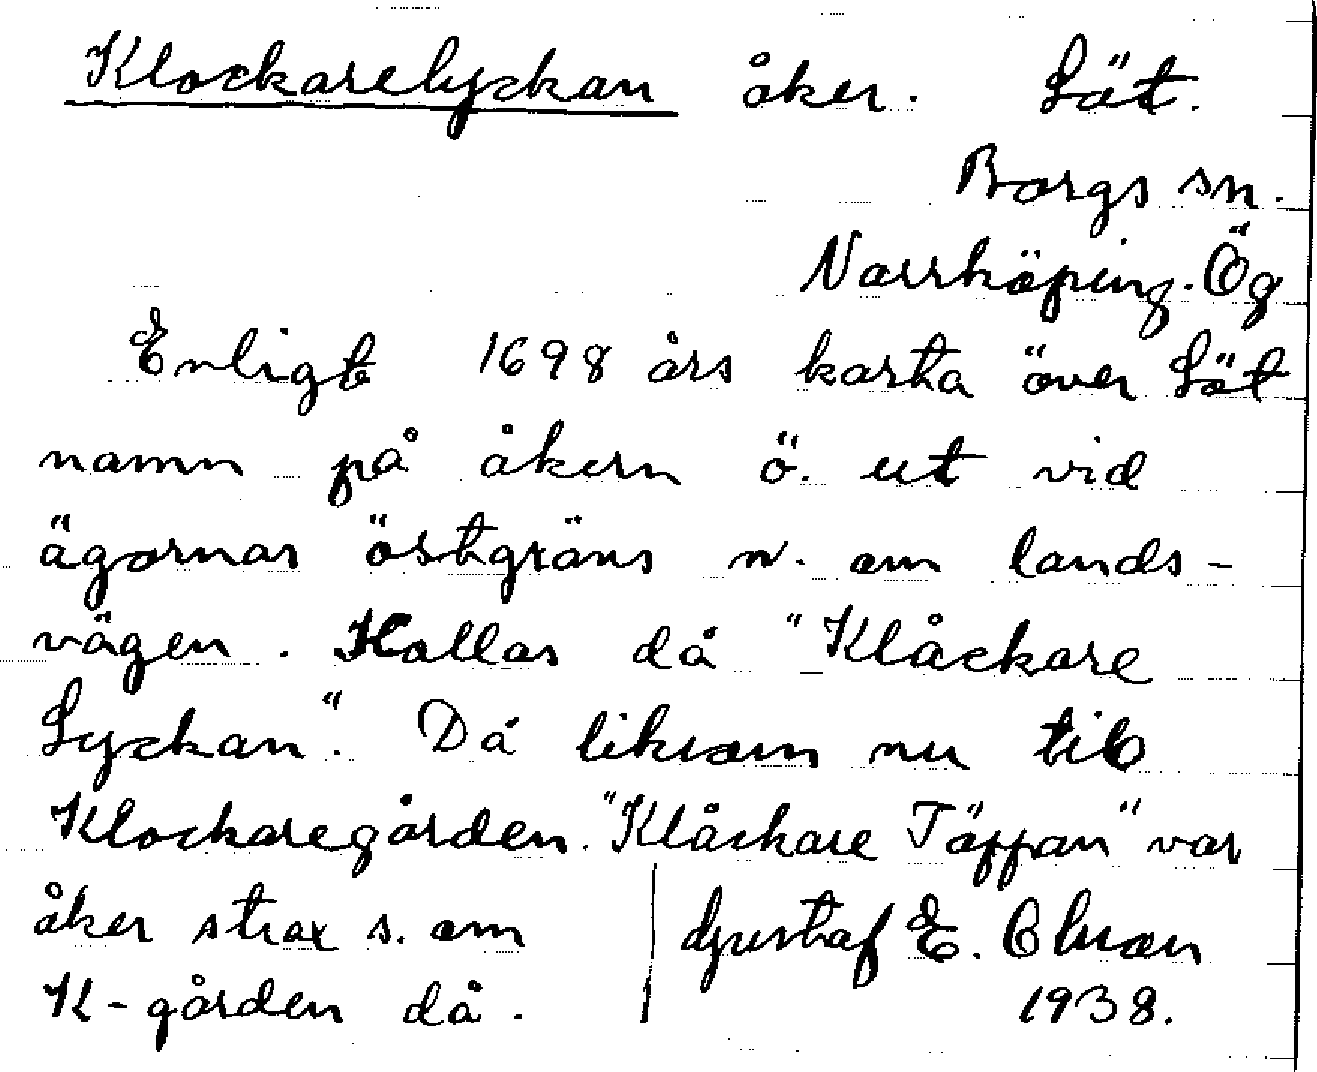 Klockarelyckan åker. Löt.
Borgs sn.
Norrköping. Ög
Enligt 1698 års karta över Löt
namn på åkern ö. ut vid
ägornas östgräns n. om lands-
vägen. Kallas då "Klåckare
Lyckan". Då liksom nu till
Klockaregården. "Klåckare Täppan" var
åker strax s. om
K-gården då.
Gustaf E. Olson
1938.